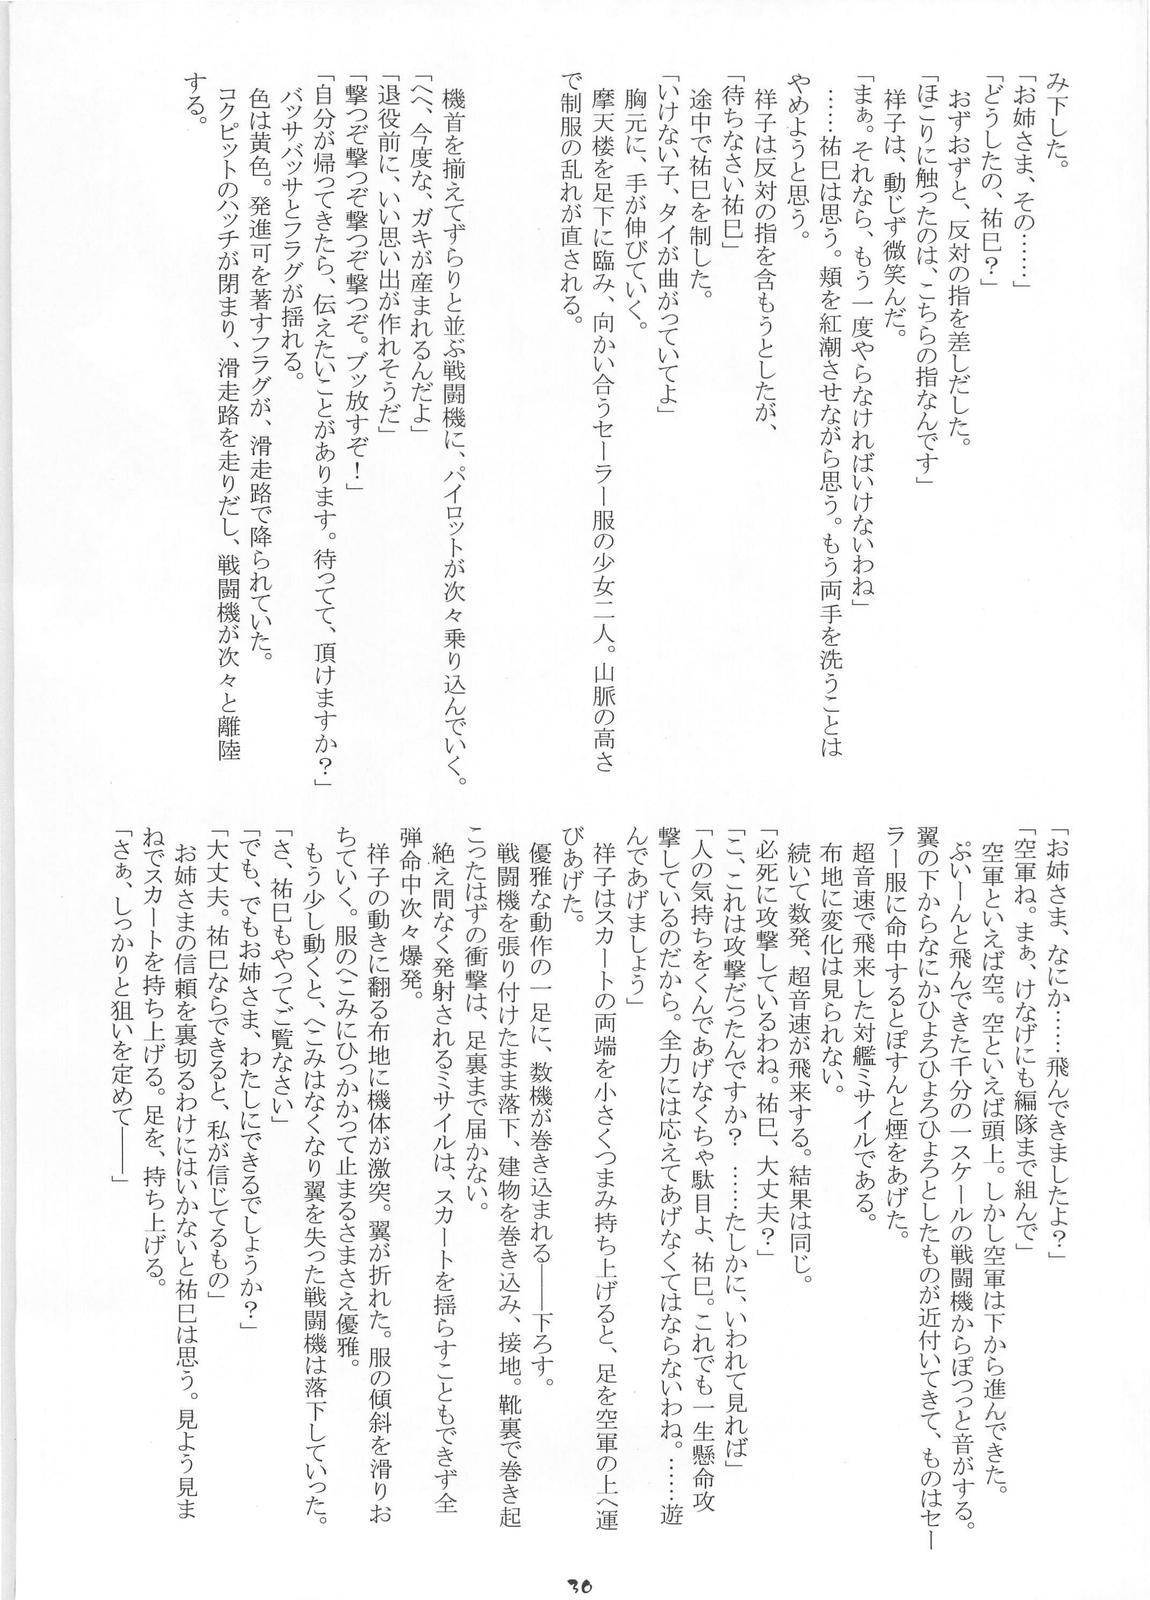 み下した。
「お姉さま、その……」
「どうしたの、祐巳？」
　おずおずと、反対の指を差しだした。
「ほこりに触ったのは、こちらの指なんです」
　祥子は、動じず微笑んだ。
「まぁ。それなら、もう一度やらなければいけないわね」
　……祐巳は思う。頬を紅潮させながら思う。もう両手を洗うことは
やめようと思う。
　祥子は反対の指を含もうとしたが、
「待ちなさい祐巳」
　途中で祐巳を制した。
「いけない子、タイが曲がっていてよ」
　胸元に、手が伸びていく。
　摩天楼を足下に臨み、向かい合うセーラー服の少女二人。山脈の高さ
で制服の乱れが直される。
　機首を揃えてずらりと並ぶ戦闘機に、パイロットが次々乗り込んでいく。
「へへ、今度な、ガキが産まれるんだよ」
「退役前に、いい思い出が作れそうだ」
「撃つぞ撃つぞ撃つぞ撃つぞ。ブッ放すぞ！」
「自分が帰ってきたら、伝えたいことがあります。待ってて、頂けますか？」
　バッサバッサとフラグが揺れる。
　色は黄色。発進可を著すフラグが、滑走路で降られていた。
　コクピットのハッチが閉まり、滑走路を走りだし、戦闘機が次々と離陸
する。
「お姉さま、なにか……飛んできましたよ？」
「空軍ね。まぁ、けなげにも編隊まで組んで」
　空軍といえば空。空といえば頭上。しかし空軍は下から進んできた。
　ぷいーんと飛んできた千分の一スケールの戦闘機からぽつっと音がする。
　翼の下からなにかひょろひょろひょろとしたものが近付いてきて、ものはセー
ラー服に命中するとぽすんと煙をあげた。
　超音速で飛来した対艦ミサイルである。
　布地に変化は見られない。
　続いて数発、超音速が飛来する。結果は同じ。
「必死に攻撃しているわね。祐巳、大丈夫？」
「こ、これは攻撃だったんですか？　……たしかに、いわれて見れば」
「人の気持ちをくんであげなくちゃ駄目よ、祐巳。これでも一生懸命攻
撃しているのだから。全力には応えてあげなくてはならないわね。……遊
んであげましょう」
　祥子はスカートの両端を小さくつまみ持ち上げると、足を空軍の上へ運
びあげた。
　優雅な動作の一足に、数機が巻き込まれる――下ろす。
　戦闘機を張り付けたまま落下、建物を巻き込み、接地。靴裏で巻き起
こったはずの衝撃は、足裏まで届かない。
　絶え間なく発射されるミサイルは、スカートを揺らすこともできず全
弾命中次々爆発。
　祥子の動きに翻る布地に機体が激突。翼が折れた。服の傾斜を滑りお
ちていく。服のへこみにひっかかって止まるさまさえ優雅。
　もう少し動くと、へこみはなくなり翼を失った戦闘機は落下していった。
「さ、祐巳もやってご覧なさい」
「でも、でもお姉さま、わたしにできるでしょうか？」
「大丈夫。祐巳ならできると、私が信じてるもの」
　お姉さまの信頼を裏切るわけにはいかないと祐巳は思う。見よう見ま
ねでスカートを持ち上げる。足を、持ち上げる。
「さぁ、しっかりと狙いを定めて――」
30